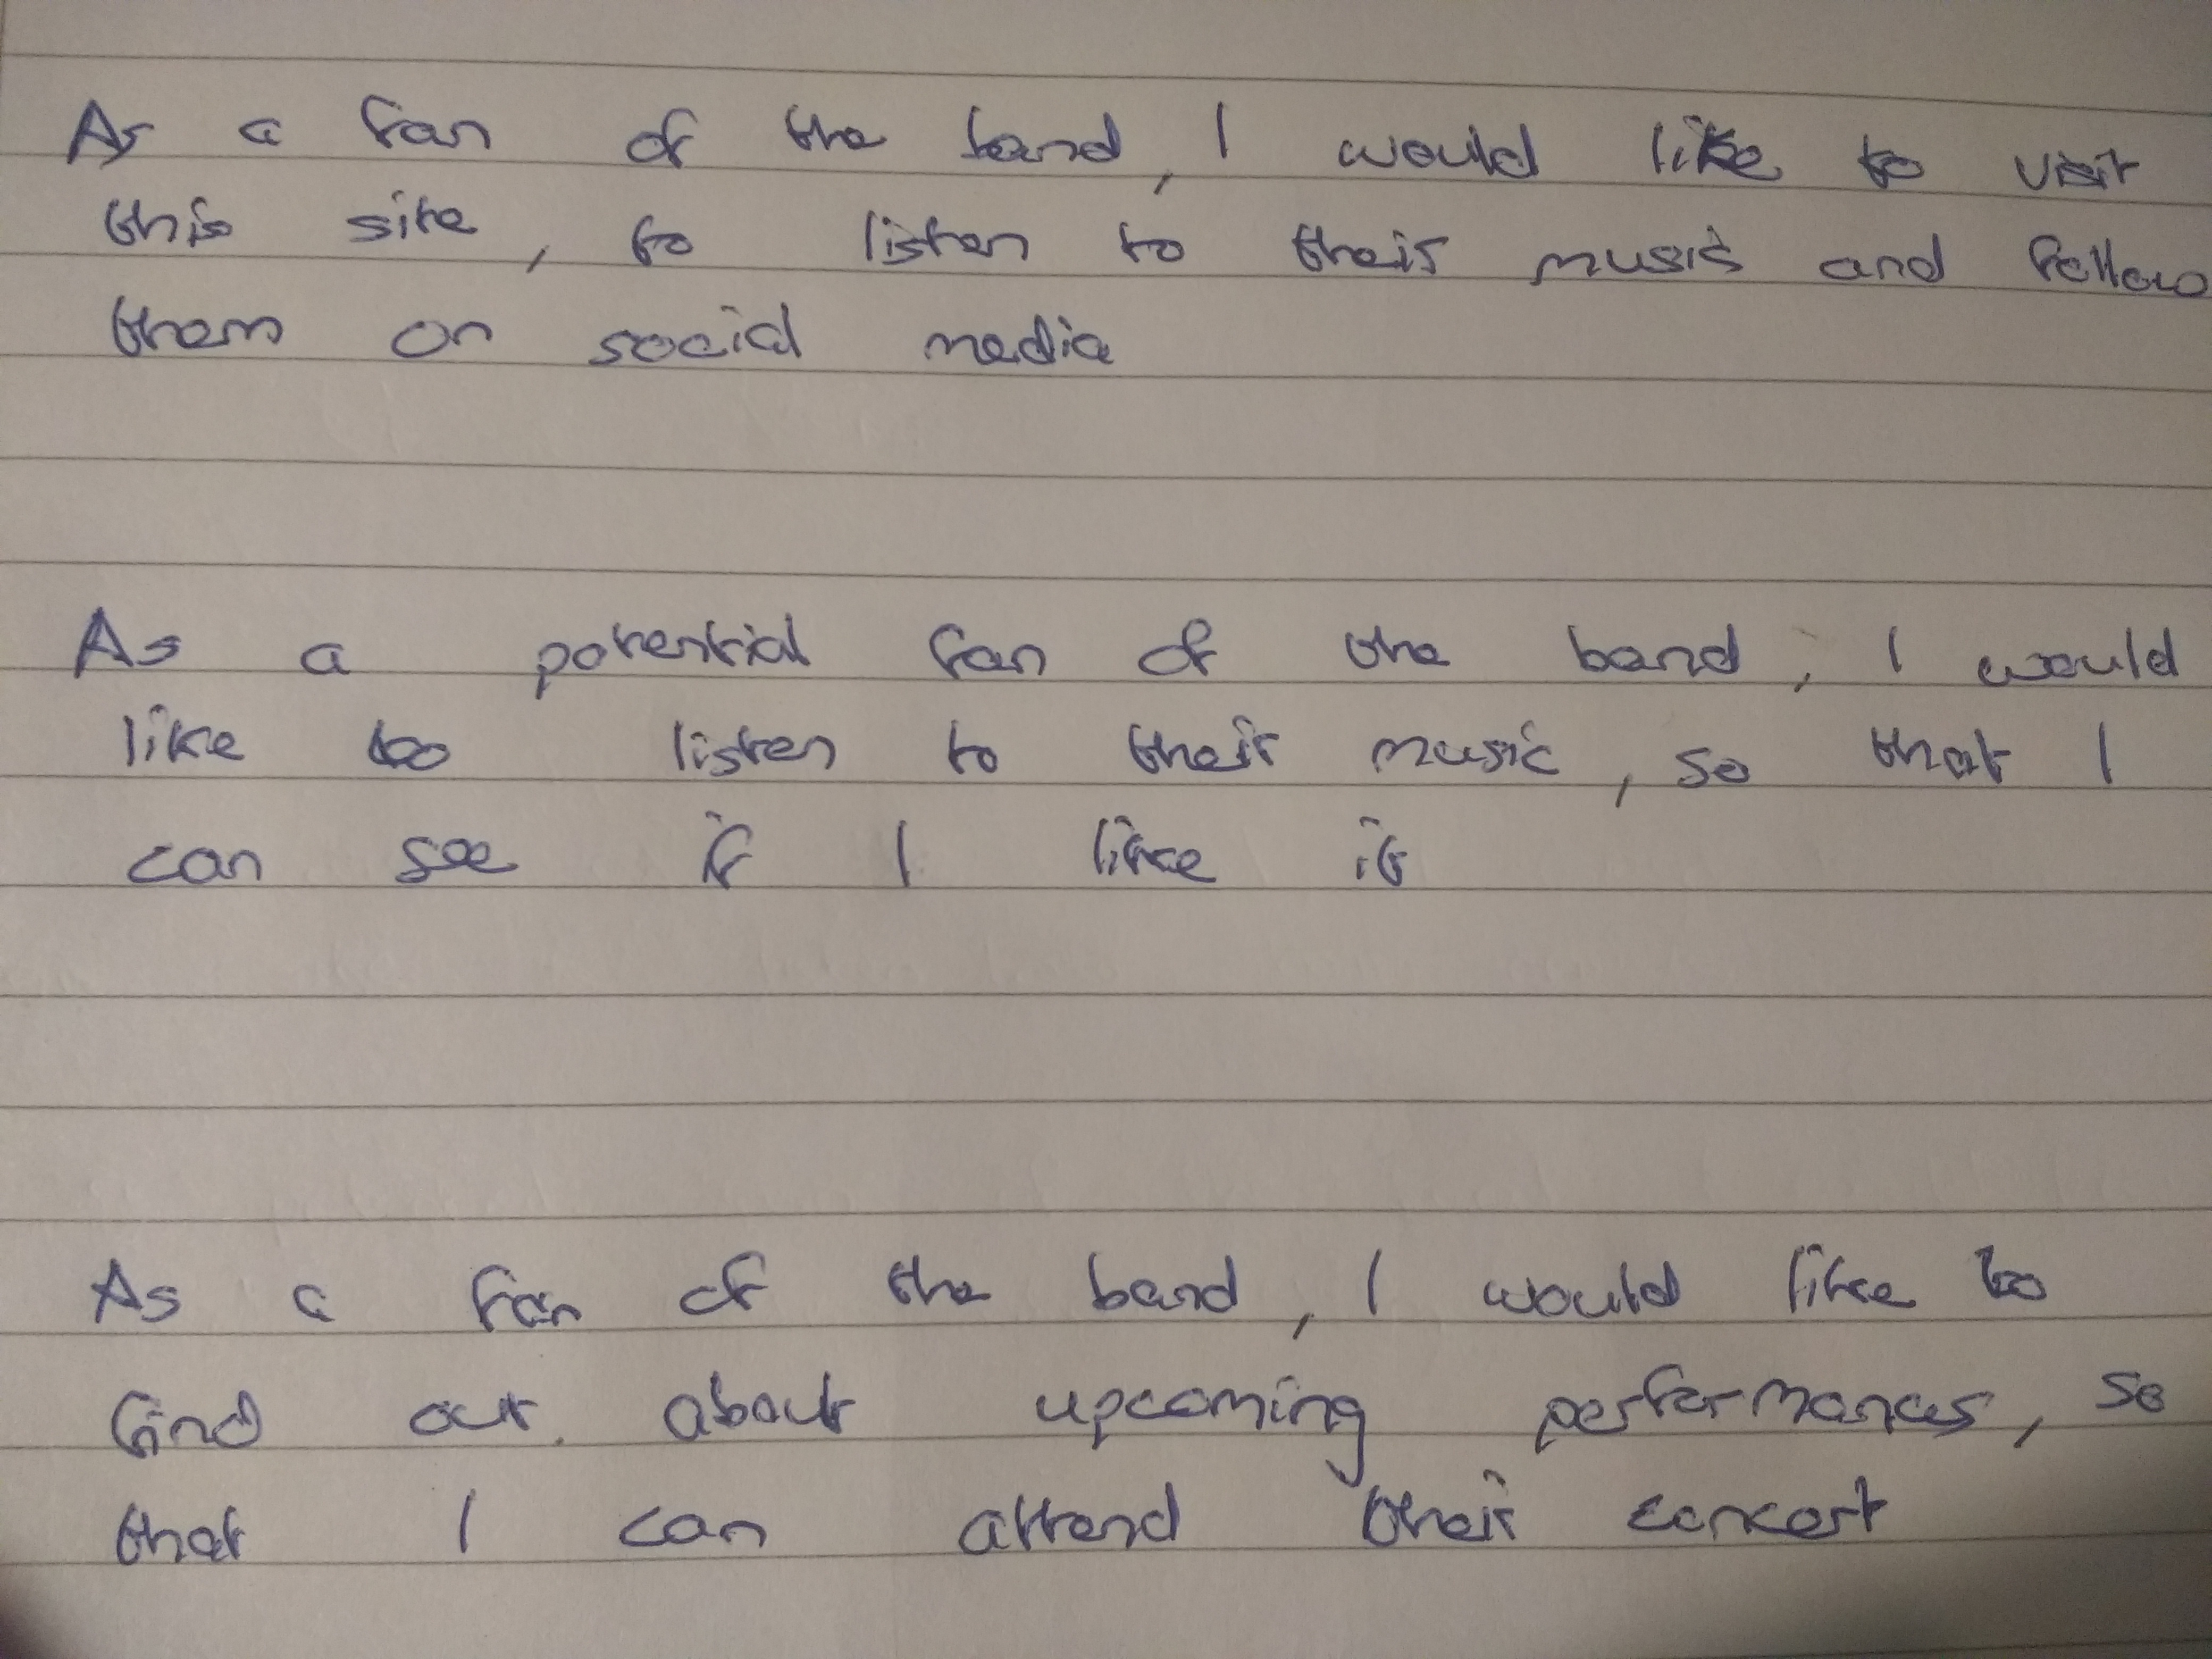 As a fan of the band, I would like to visit
this site, to listen to their music and follow
them on social media
As a potential fan of the band, I would
like to listen to their music, so that I
can see if I like it
As a fan of the band, I would like to
find out about upcoming performances, so
that I can attend their concert